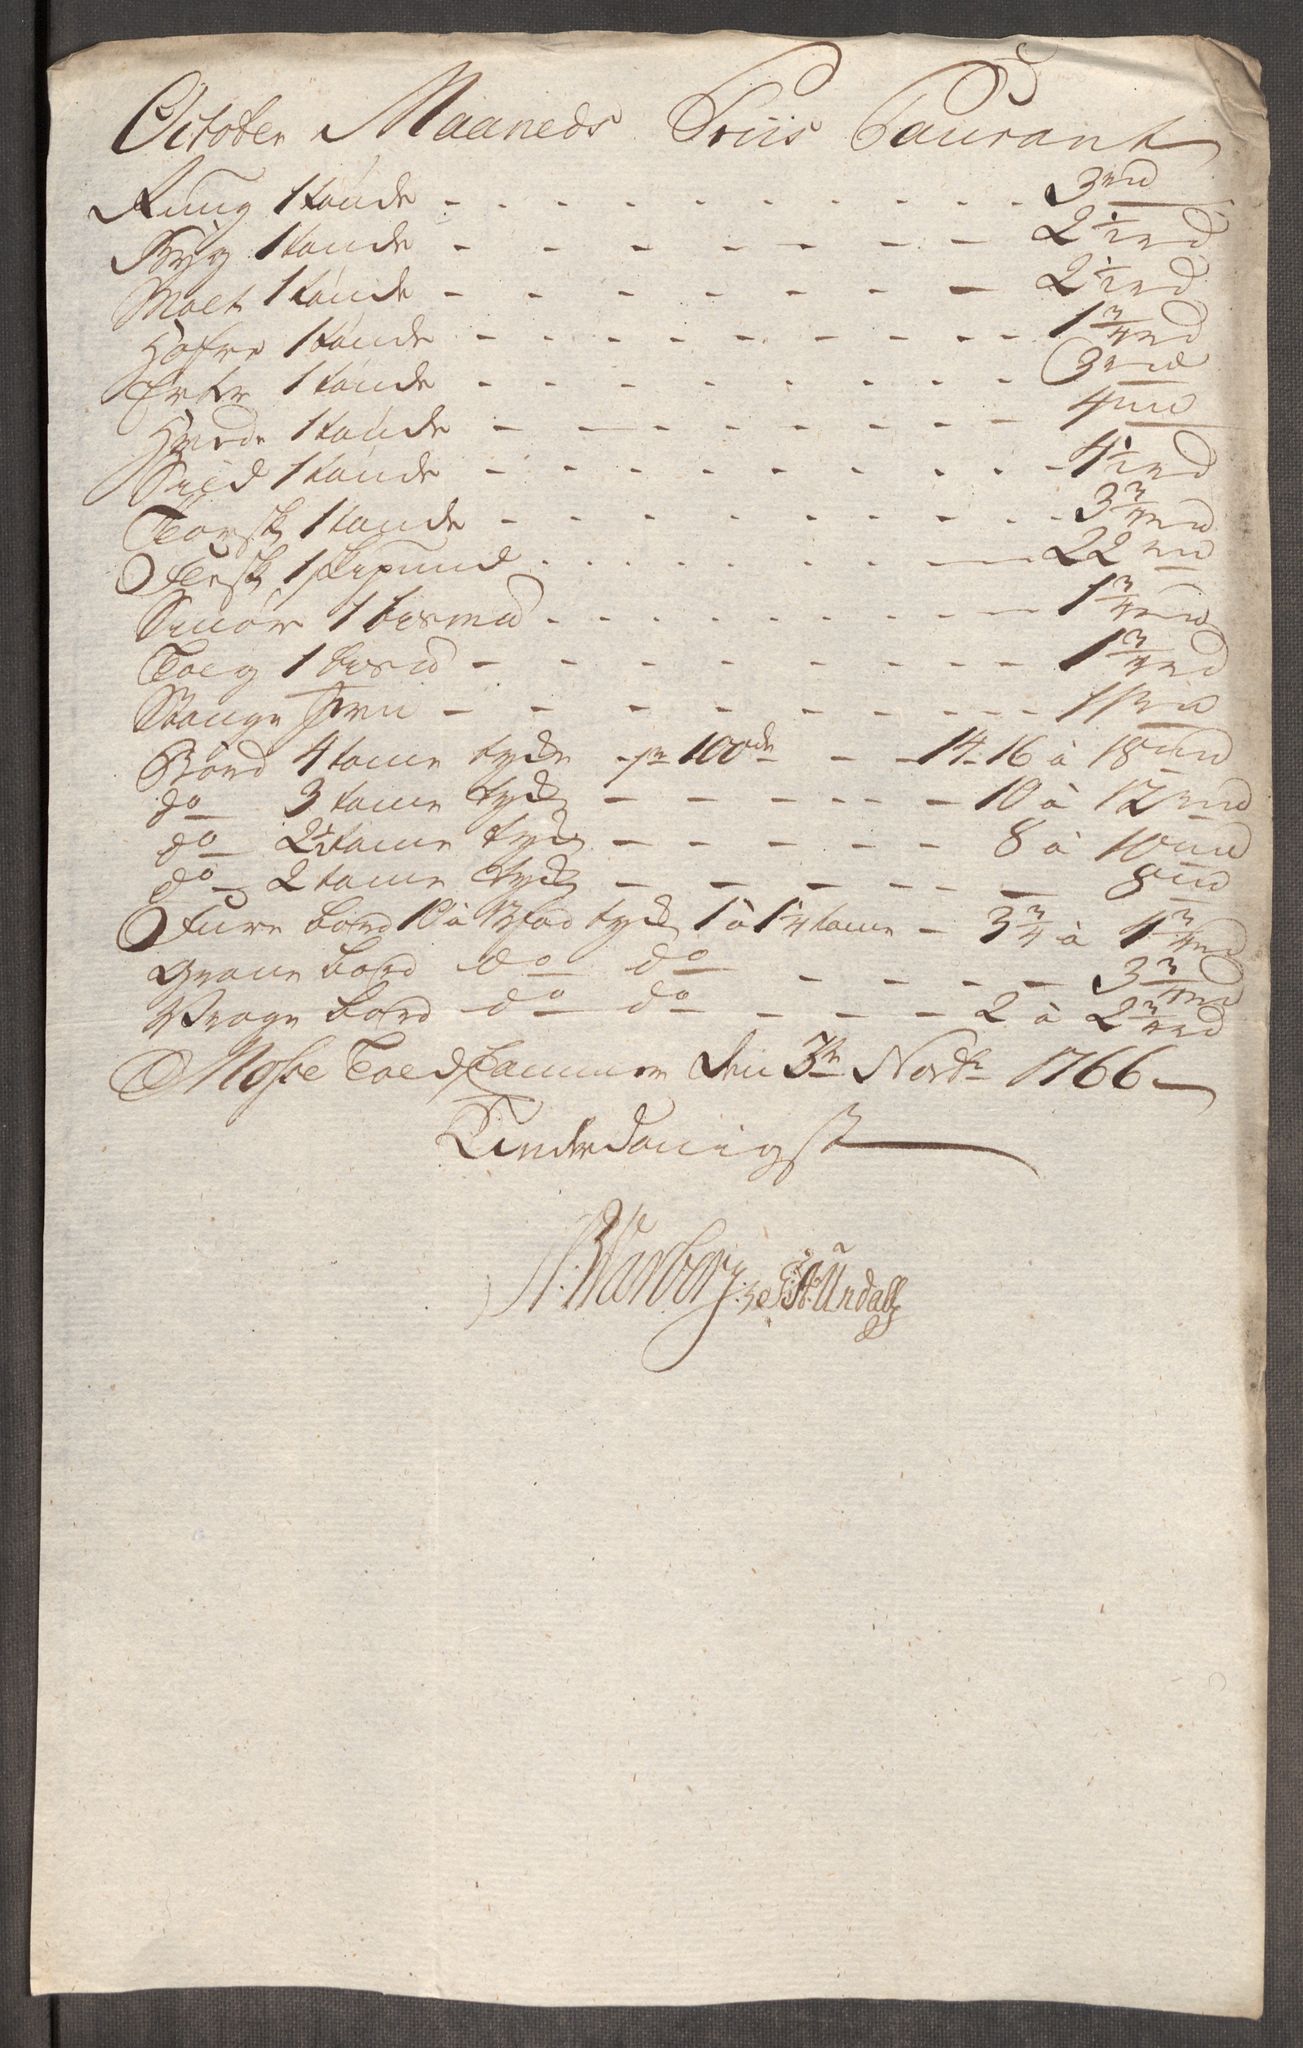 October Maaneds Priis Courant
Rug 1 tønde - - - - - - - - - 3 rd
Byg 1 tønde - - - - - - - 2 1/2 rd
Malt 1 tønde - - - - - - - 2 1/2 rd
Hafre 1 tønde - - - - - - - - 1 3/4 rd
Erter 1 tønde - - - - - - - - 3 rd
Hvede 1 tønde - - - - - - - - 4 rd
Sild 1 tønde - - - - - - - - 4 1/2 rd
Torsk 1 tønde - - - - - - - - 3 3/4 rd
Flesk 1 skipund - - - - - - - 22 rd
Smør 1 bismd - - - - - - - 1 3/4 rd
Talg 1 bismd - - - - - - - 1 3/4 rd
Stange Jern - - - - - - - -
Bord 4 tome tyke pr 100de - - 14. 16 à 18 rd
do 3 tome tyk - - - - - 10 à 12 rd
do 2 1/2 tome tyk - - - - - 8 à 10 rd
do 2 tome tyk - - - - - - 8 rd
Fure bord 10 à 12 fod tyk 1 à 1 1/4 tome - 3 3/4 à 4 3/4 rd
Grane bord do do - - - - 3 3/4 rd
Vrage bord do do - - - - 2 à 2 3/4 rd
Mosse Toldkammer den 3te Novbr 1766
Underdanigst
N: Warberg. G: A: Undall